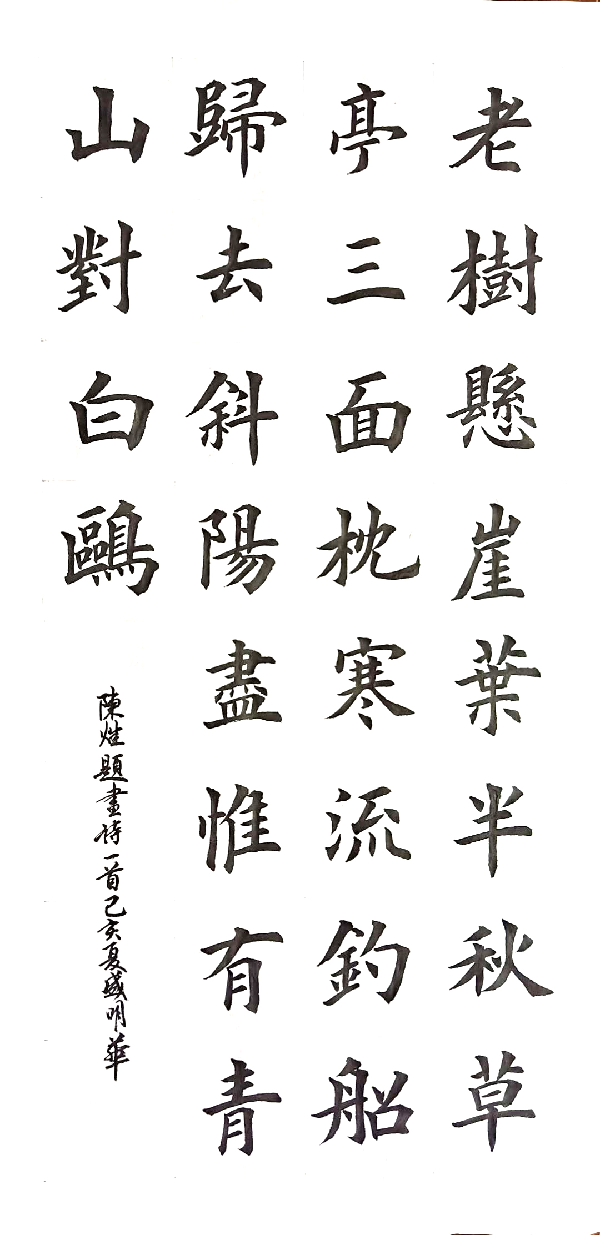 老樹懸崖葉半秋草
亭三面枕寒流釣船
歸去斜陽盡惟有青
山對白鷗
陳煃題畫詩一首己亥夏盛明華